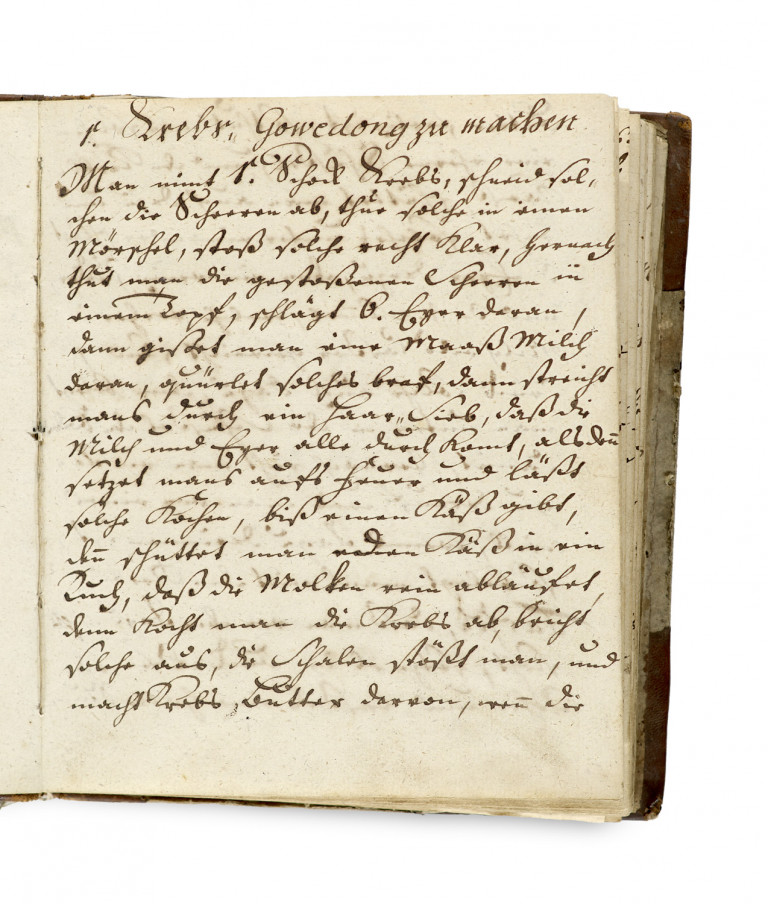 1. Krebs„ Gowedong zu machen
Man nimt 1. Schock Krebs, schneid sol„
chen die Scheeren ab, thue solche in einen
Mörschel, stoß solche recht Klar, hernach
thut man die gestoßenen Scheeren in
einem Topf, schlägt 6. Eyer daran,
dann gißet man eine Maaß Milch
daran, quürlet solches braf, dann streicht
mans durch ein Haar„ Sieb, daß die
Milch und Eyer alle durch komt, alsdeñ
setzet mans aufs Feuer und läßt
solche Kochen, biß einen Käß gibt,
deñ schüttet man den Käß in ein
Tuch, daß die Molken rein abläufet,
denn Kocht man die Krebs ab, bricht
solche aus, die Schalen stößt man, und
macht Krebs„Butter darvon, weñ die